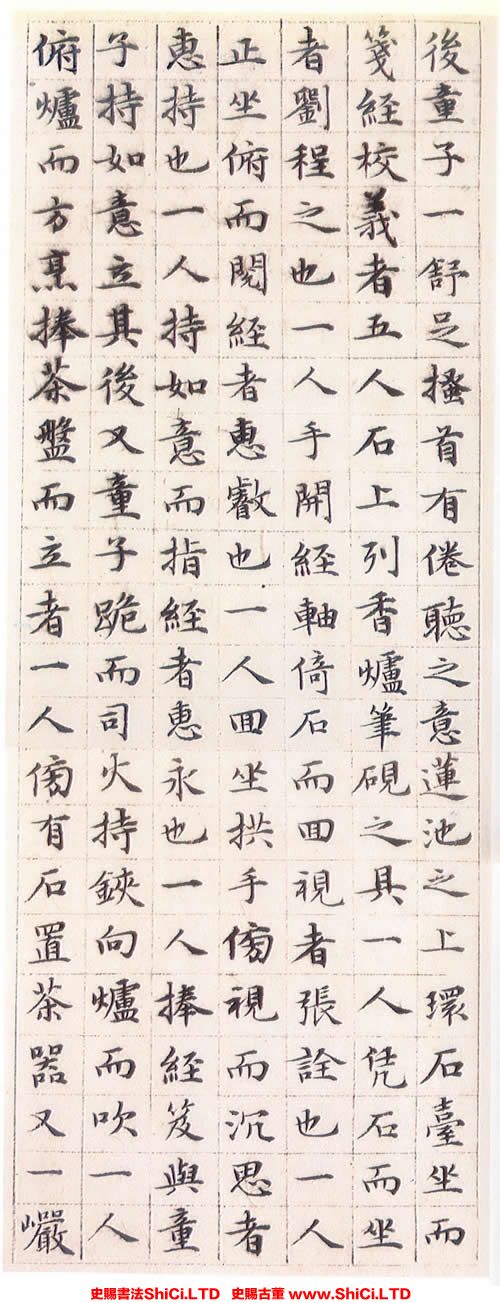 後童子一舒足搔首有倦聽之意蓮池之上環石臺坐而
箋經校義者五人石上列香爐筆硯之具一人凭石而坐
者劉程之也一人手開經軸倚石而回視者張詮也一人
正坐俯而閱經者惠叡也一人回坐拱手傍視而沉思者
惠持也一人持如意而指經者惠永也一人捧經笈與童
子持如意立其後又童子跪而司火持鋏向爐而吹一人
俯爐而方烹捧茶盤而立者一人傍有石置茶器又一巖
史賜書法ShiCi.LTD 史賜古董 www.ShiCi.LTD